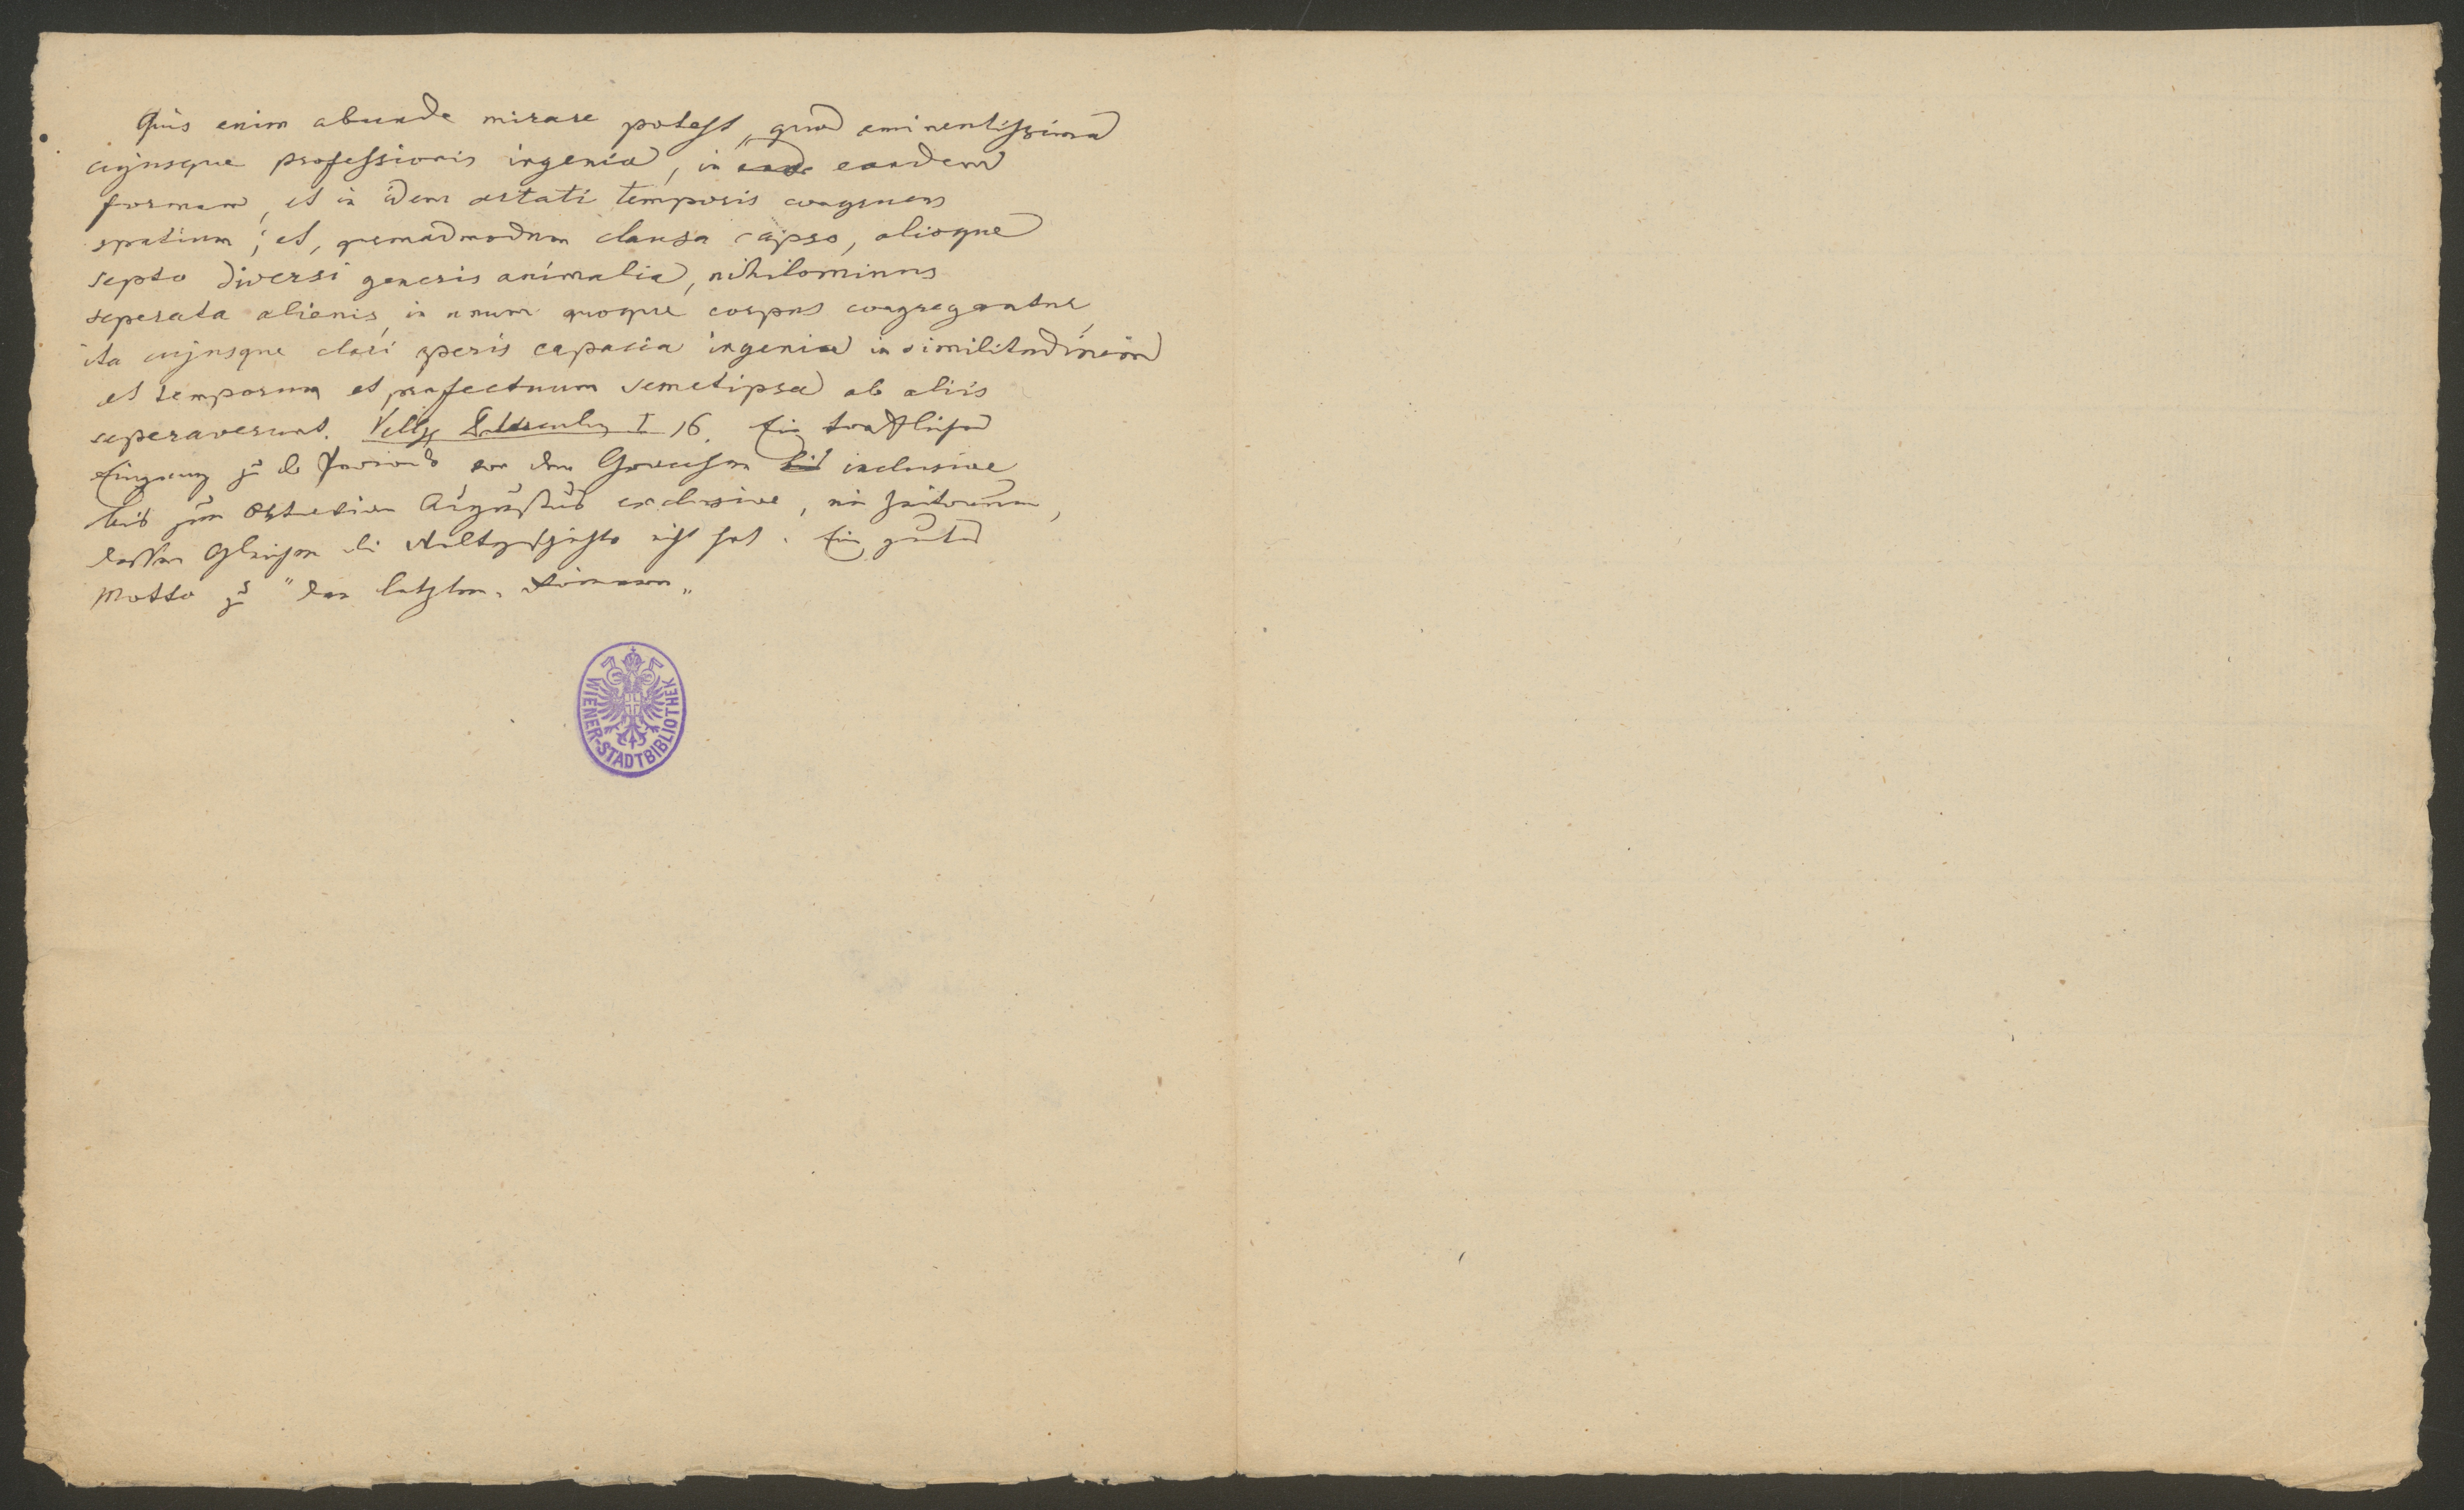 Quis enim abunde mirare potest, quod eminentissima
cujusque professionis ingenia, in eandem
formam, et in idem aetati temporis congruens
spatium; et, quemadmodum clausa capso, alioque
septo diversi generis animalia, nihilominus
seperata alienis, in unum quoque corpus congregantur,
ita cujusque clari operis capacia ingenia in similitudinem
et temporum et profectuum semetipsa ab aliis
seperaverunt. Vellej. Paterculus I 16. Ein trefflicher
Eingang zu der Periode von den Gracchen inclusive
bis zum Octavian Augustus exclusive, ein Zeitraum,
dessen Gleichen die Weltgeschichte nicht hat. Ein gutes
Motto zu "den letzten Römern"
WIENER-STADTBIBLIOTHEK